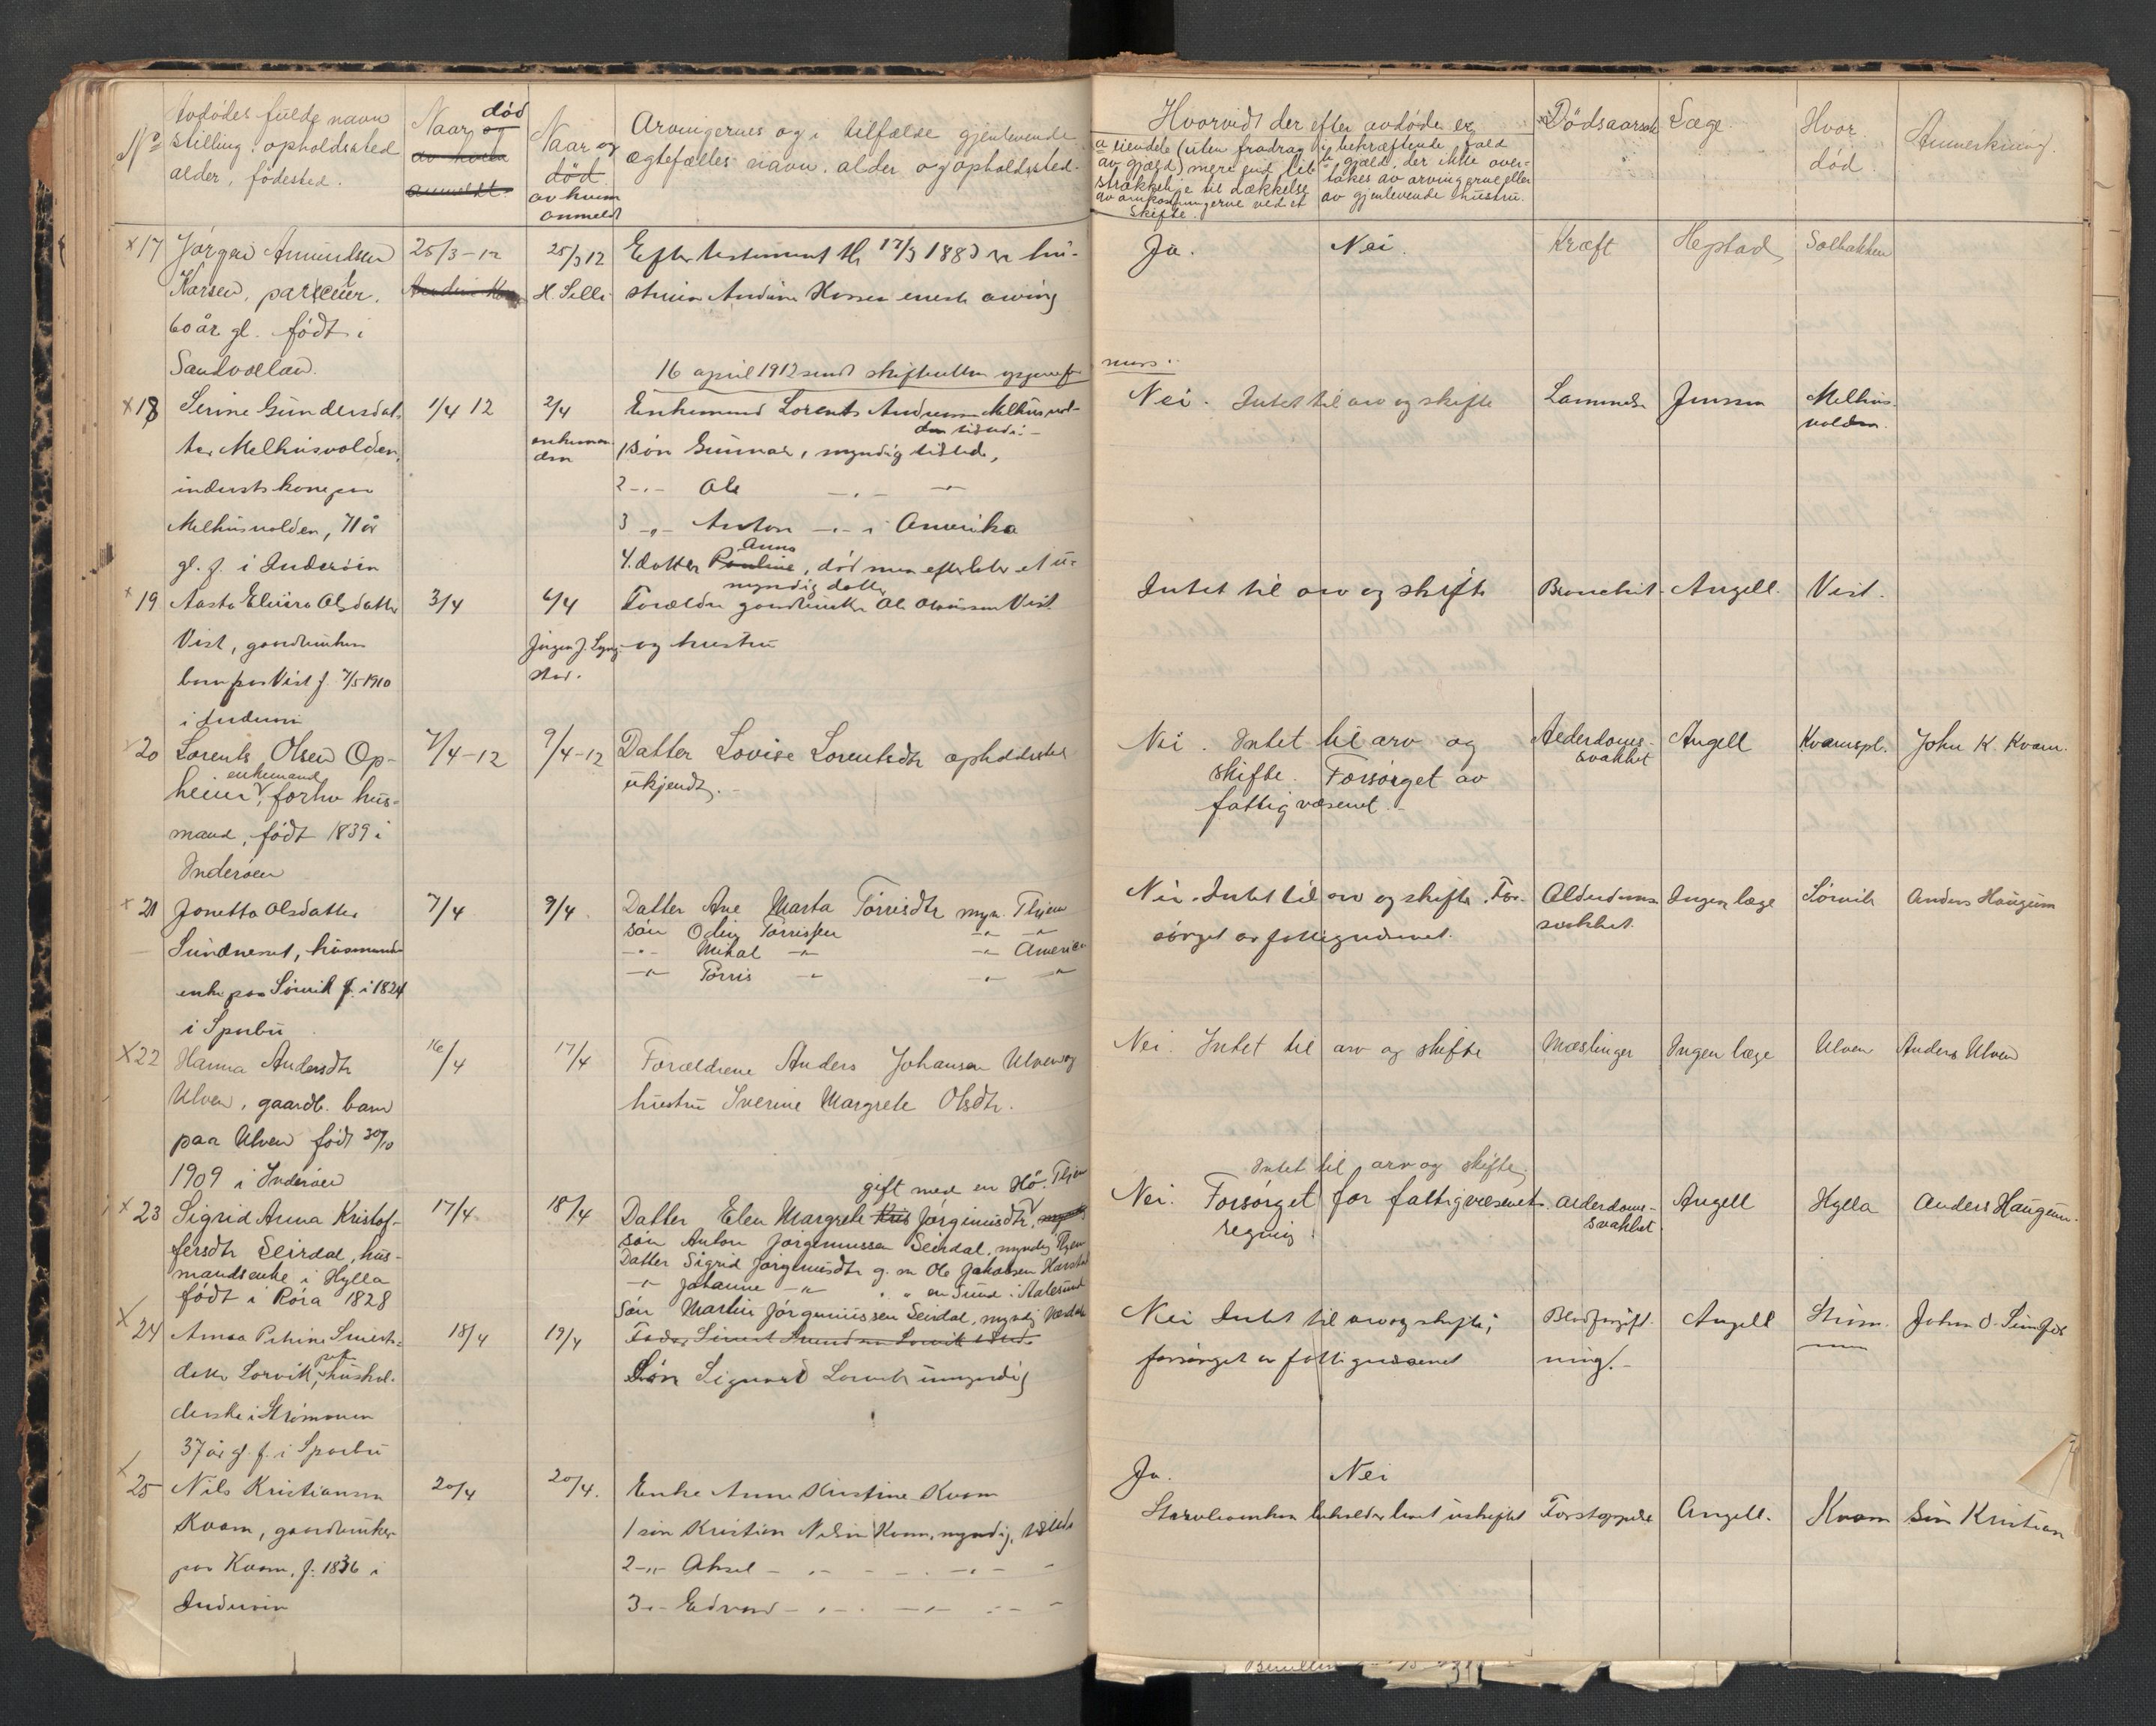 No
Avdödes fulde navn
stilling, opholdssted
alder, födested.
Naar død og
av hvem
anmeldt
Naar og
død
av hvem
anmeldt
Arvingernes og i tilfælde gjenlevende
ægtefælles navn, alder og opholdssted.
Hvorvidt der efter avdöde er
a eiendele (uten fradrag
av gjæld) mere end til-
strækkelige til dækkelse
av omkostningerne ved et
skifte.
i bekræftende fald
b gjæld, der ikke over-
takes av arvingerne eller
av gjenlevende hustru.
Dödsaarsak
Læge
Hvor
död.
Anmerkning.
x 17
Jørgen Amundsen
Karsen, particulier,
60 år gl. født i
Sandvollan.
25/3-12
25/3 12
H. Selli
Efter testament 17/3 1883 er hu-
struen Andrine Hansen eneste arving
16 april 1912 sendt skifteretten
Ja.
Nei.
Kræft
Hepsad
Solbakken
x 18
Serine Gundersdat-
ter Melhusvolden,
inderstkone paa
Melhusvolden, 71 år
gl. f. i Inderöen
1/4 12
2/4
enkeman-
den
Enkemand Lorents Andreassen Melhusvol-
den
1 Sön Gunnar, myndig, isteds,
2 -"- Ole -"- -"-
3 -"- Anton -"- i Amerika
4. datter Pauline Anna, död men efterlater et u-
myndig datter
Nei. Intet til arv og skifte
Lammelse
Jenssen
Melhus-
volden.
x 19
Aasta Elvira Olsdatter
Vist, gaardbruker
barn paa Vist f. 7/5 1910
i Inderöen
3/4
6/4
Jörgen J. Lyng-
stad.
Forældre gaardbruker Ole Olaussen Vist
og hustru
Intet til arv og skifte
Bronchit.
Angell.
Vist.
x 20
Lorents Olsen Op-
heim, enkemand, forhv. hus-
mand, født 1839 i
Inderöen
7/4-12
9/4-12
Datter Lovise Lorentsdtr opholdssted
ukjendt.
Nei. Intet til arv og
skifte. Forsörget av
fattigvæsenet.
Alderdoms-
svakhet
Angell
Kvamspl.
John K. Kvam.
x 21
Jonetta Olsdatter
Sundneset, husmands-
enke paa Sörvik f. i 1824
i Sparbu
7/4
9/4.
Datter Ane Marta Törrisdtr myn. Thjem
sön Odin Törrissen -"- -"-
-"- Mikal -"- -"- Amerika
-"- Törris -"- -"- -"-
Nei. Intet til arv og skifte. For-
sörget av fattigvæsenet.
Alderdoms-
svakhet.
Ingen læge
Sörvik
Anders Haugum
x 22
Hanna Andersdtr
Ulven, gaardb. barn
paa Ulven født 30/10
1909 i Inderöen
16/4
17/4
Forældrene Anders Johansen Ulven og
hustru Iverine Margrete Olsdtr.
Nei. Intet til arv og skifte
Mæslinger
Ingen læge
Ulven
Anders Ulven
x 23
Sigrid Anna Kristof-
fersdtr Seirdal, hus-
mandsenke i Hylla
født i Röra 1828
17/4
18/4
gift med en Hö. Thjem
Datter Elen Margrete Kris Jörginusdtr,
sön Anton Jörginussen Seirdal, myndig Thjem
Datter Sigrid Jörginusdtr g. m Ole Jakobsen Harstad
-"- Johanne -"- " " en Sund i Aalesund
Sön Martin Jörginussen Seirdal, myndig Verdalen
Intet til arv og skifte.
Nei. Forsörget for fattigvæsenets
regning
Alderdoms-
svakhet.
Angell
Hylla
Anders Haugum.
x 24
Anna Petrine Siverts-
datter Lorvik, hushol-
derske i Strömmen
37 år gl. f. i Sparbu
18/4
19/4
Sön Sigvard Lorvik umyndig
Nei Intet til arv og skifte;
forsörget av fattigvæsenet
Blodforgift-
ning.
Angell
Ström.
x 25
Nils Kristiansen
Kvam, gaardbruker
paa Kvam, f. 1836 i
Inderöen
20/4
20/4.
Enke Anne Kristine Kvam
1 sön Kristian Nilsen Kvam, myndig, isteds
2 -"- Aksel -"- -"- -"-
3 -"- Edvard -"- -"- -"-
Ja.
Nei
beholder boet uskiftet
Forstoppelse
Angell.
Kvam
Sön Kristian